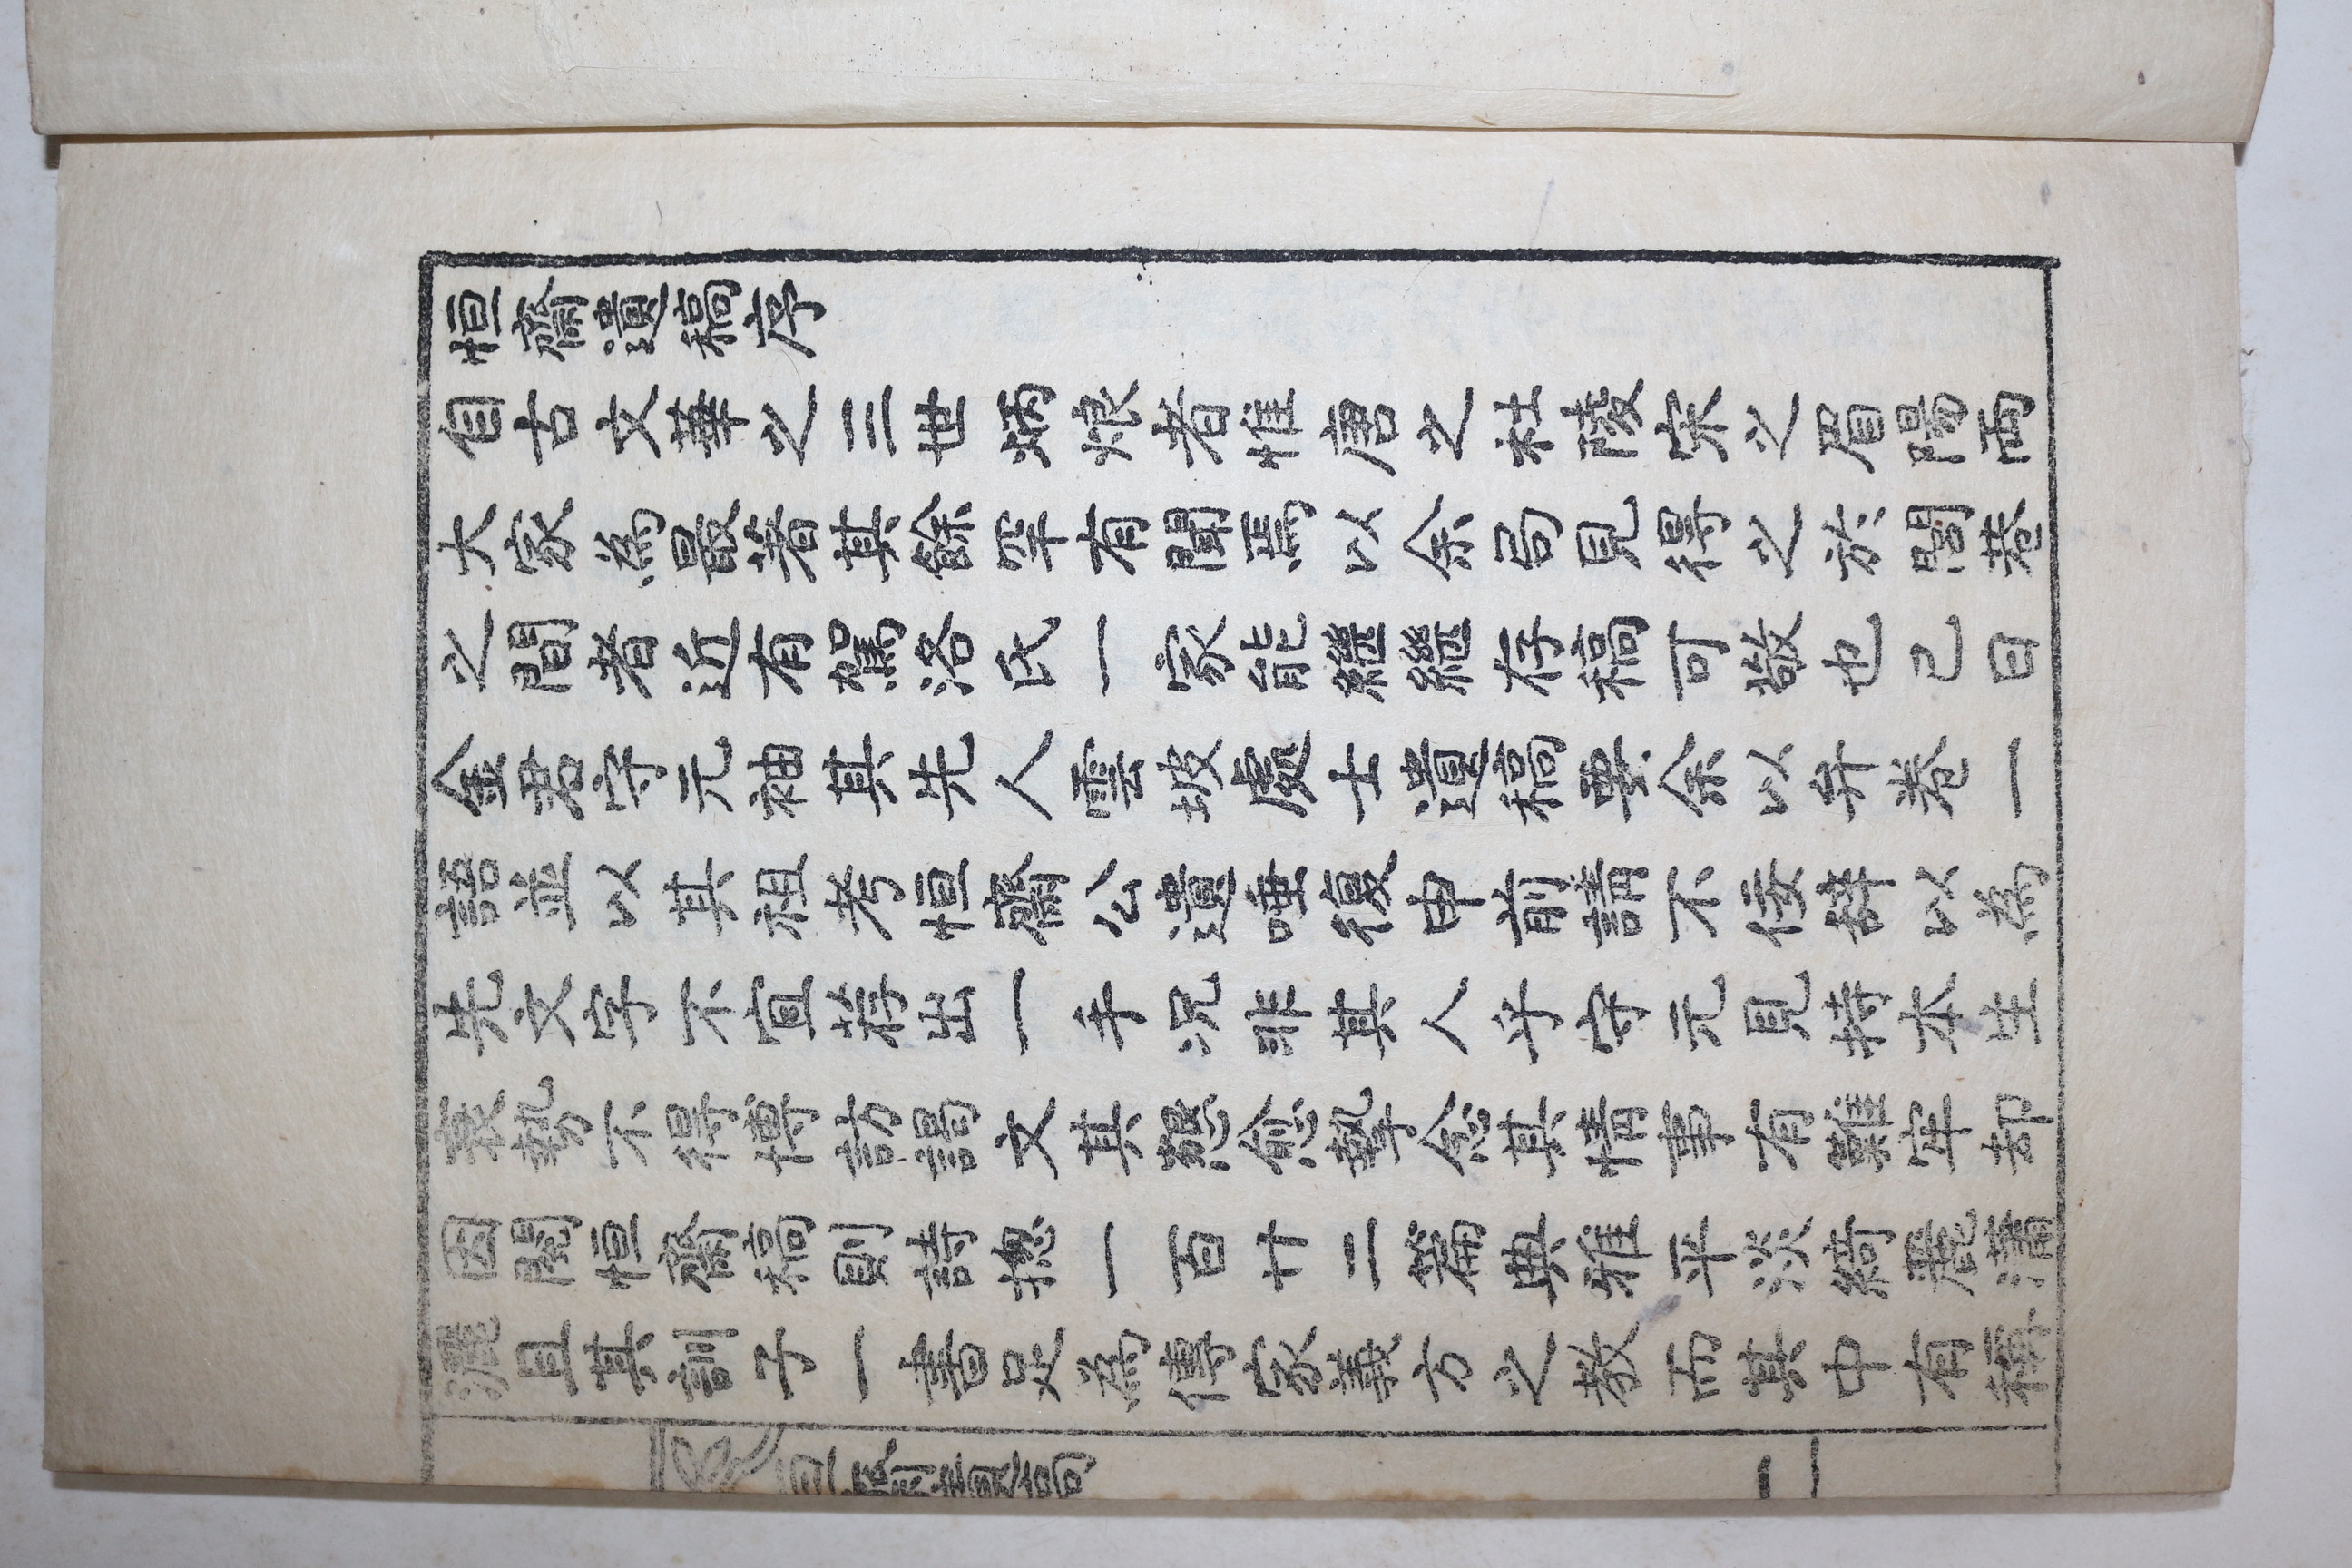 恒齋遺稿序
自古文華之三世炳烺者惟唐之杜陵宋之眉陽兩
大家爲最著其餘罕有聞焉以余所見得之於閭巷
之間者近有駕洛氏一家能繼繼存稿可敬也已日
金君守元袖其先人雲坡處士遺稿要余以弁卷一
語並以其祖考恒齋公遺墨復申前請不佞辭以爲
先文字不宜荐出一手況非其人乎守元見持本生
衰麁不得博訪謁文其慇懃墾念其情事有難牢却
因閱恒齋稿則詩捴一百廿二篇典雅平淡綺麗淸
灑且其訓子一書足爲傳家義方之敎而其中有稱
恒齋遺稿 一